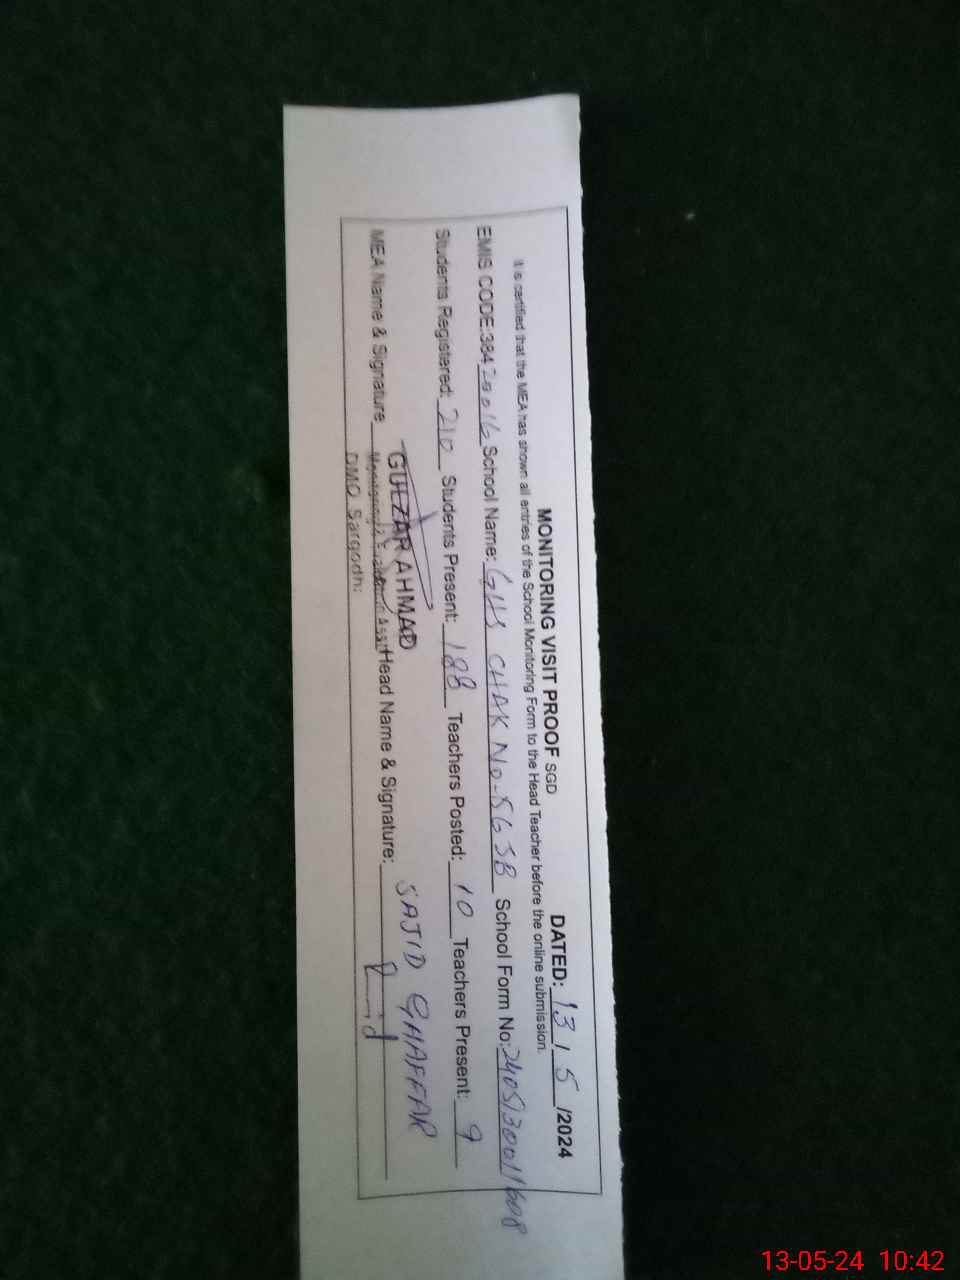 MONITORING VISIT PROOF SGD DATED: 13 / 5 /2024
It is certified that the MEA has shown all entries of the School Monitoring Form to the Head Teacher before the online submission.
EMIS CODE:38420016 School Name: GHS CHAK No-56 SB School Form No:
Students Registered: 210 Students Present: 188 Teachers Posted: 10 Teachers Present: 9
MEA Name & Signature GULZAR AHMAD Head Name & Signature: SAJID GHAFFAR
DMO Sargodh
13-05-24 10:42